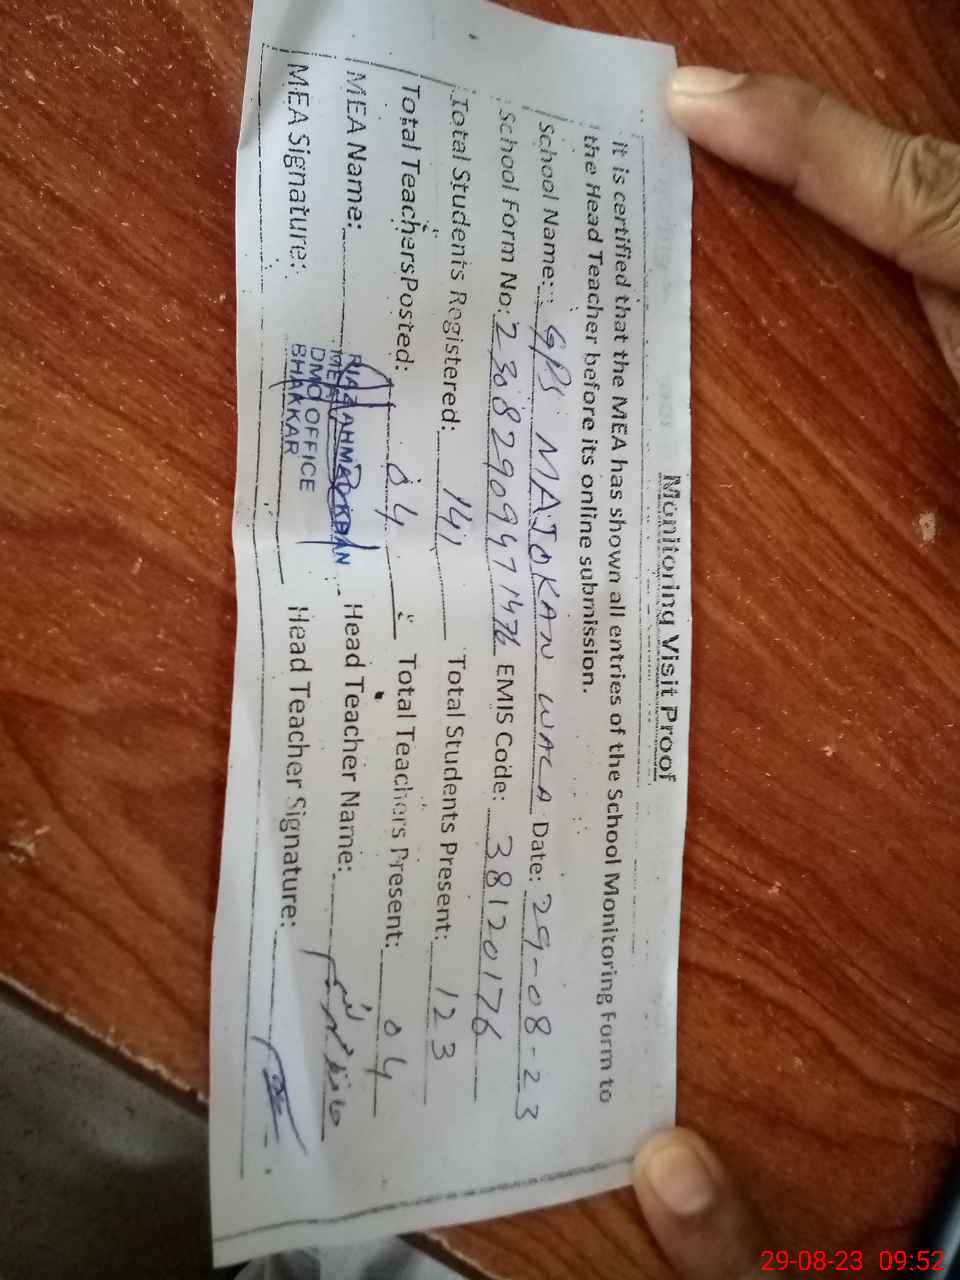 Monitoring Visit Proof
it is certified that the MEA has shown all entries of the School Monitoring Form to
the Head Teacher before its online submission.
School Name: GPS MAJOKAN WALA Date: 29-08-23
School Form No: EMIS Code: 38120176
Total Students Registered: 141 Total Students Present: 123
Total Teachers Posted: 04 Total Teachers Present: 04
MEA Name: RIAZ AHMAD KHAN Head Teacher Name:
MEA
DMO OFFICE
BHAKKAR
MEA Signature: Head Teacher Signature:
29-08-23 09:52